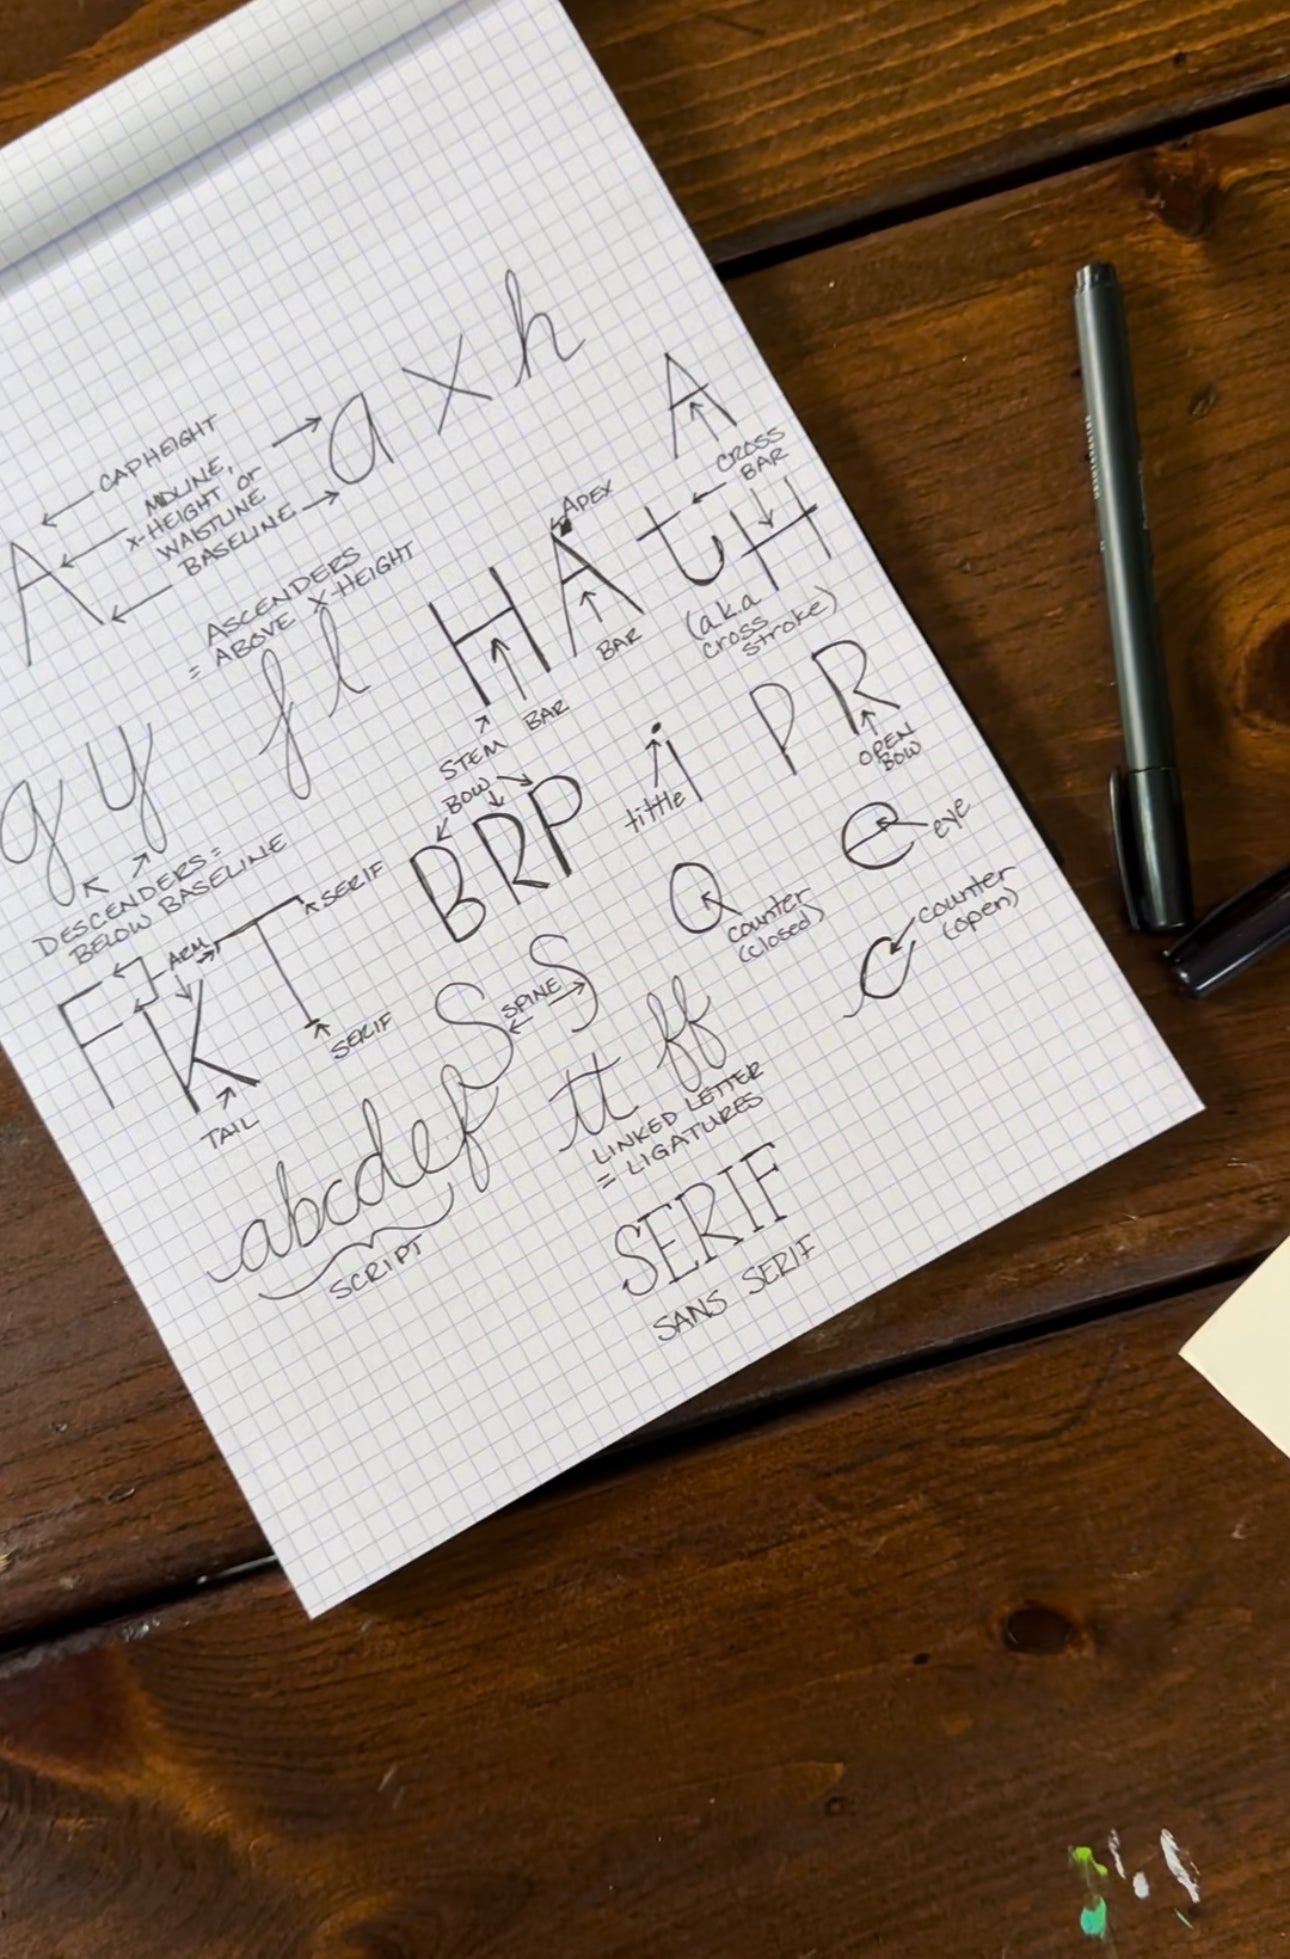 a x h
A
CAPHEIGHT
MIDLINE,
X-HEIGHT or
WAISTLINE
BASELINE
A
CROSS
BAR
t H
(a.k.a
cross
stroke)
APEX
H A
BAR
BAR
STEM
ASCENDERS
= ABOVE X-HEIGHT
f l
g y
DESCENDERS =
BELOW BASELINE
P R
OPEN
BOW
i
tittle
BOW
B R P
e
eye
Q
counter
(closed)
C
counter
(open)
SERIF
ARM
F K T
SERIF
TAIL
S S
SPINE
tt ff
LINKED LETTER
= LIGATURES
abcdef
SCRIPT
SERIF
SANS SERIF